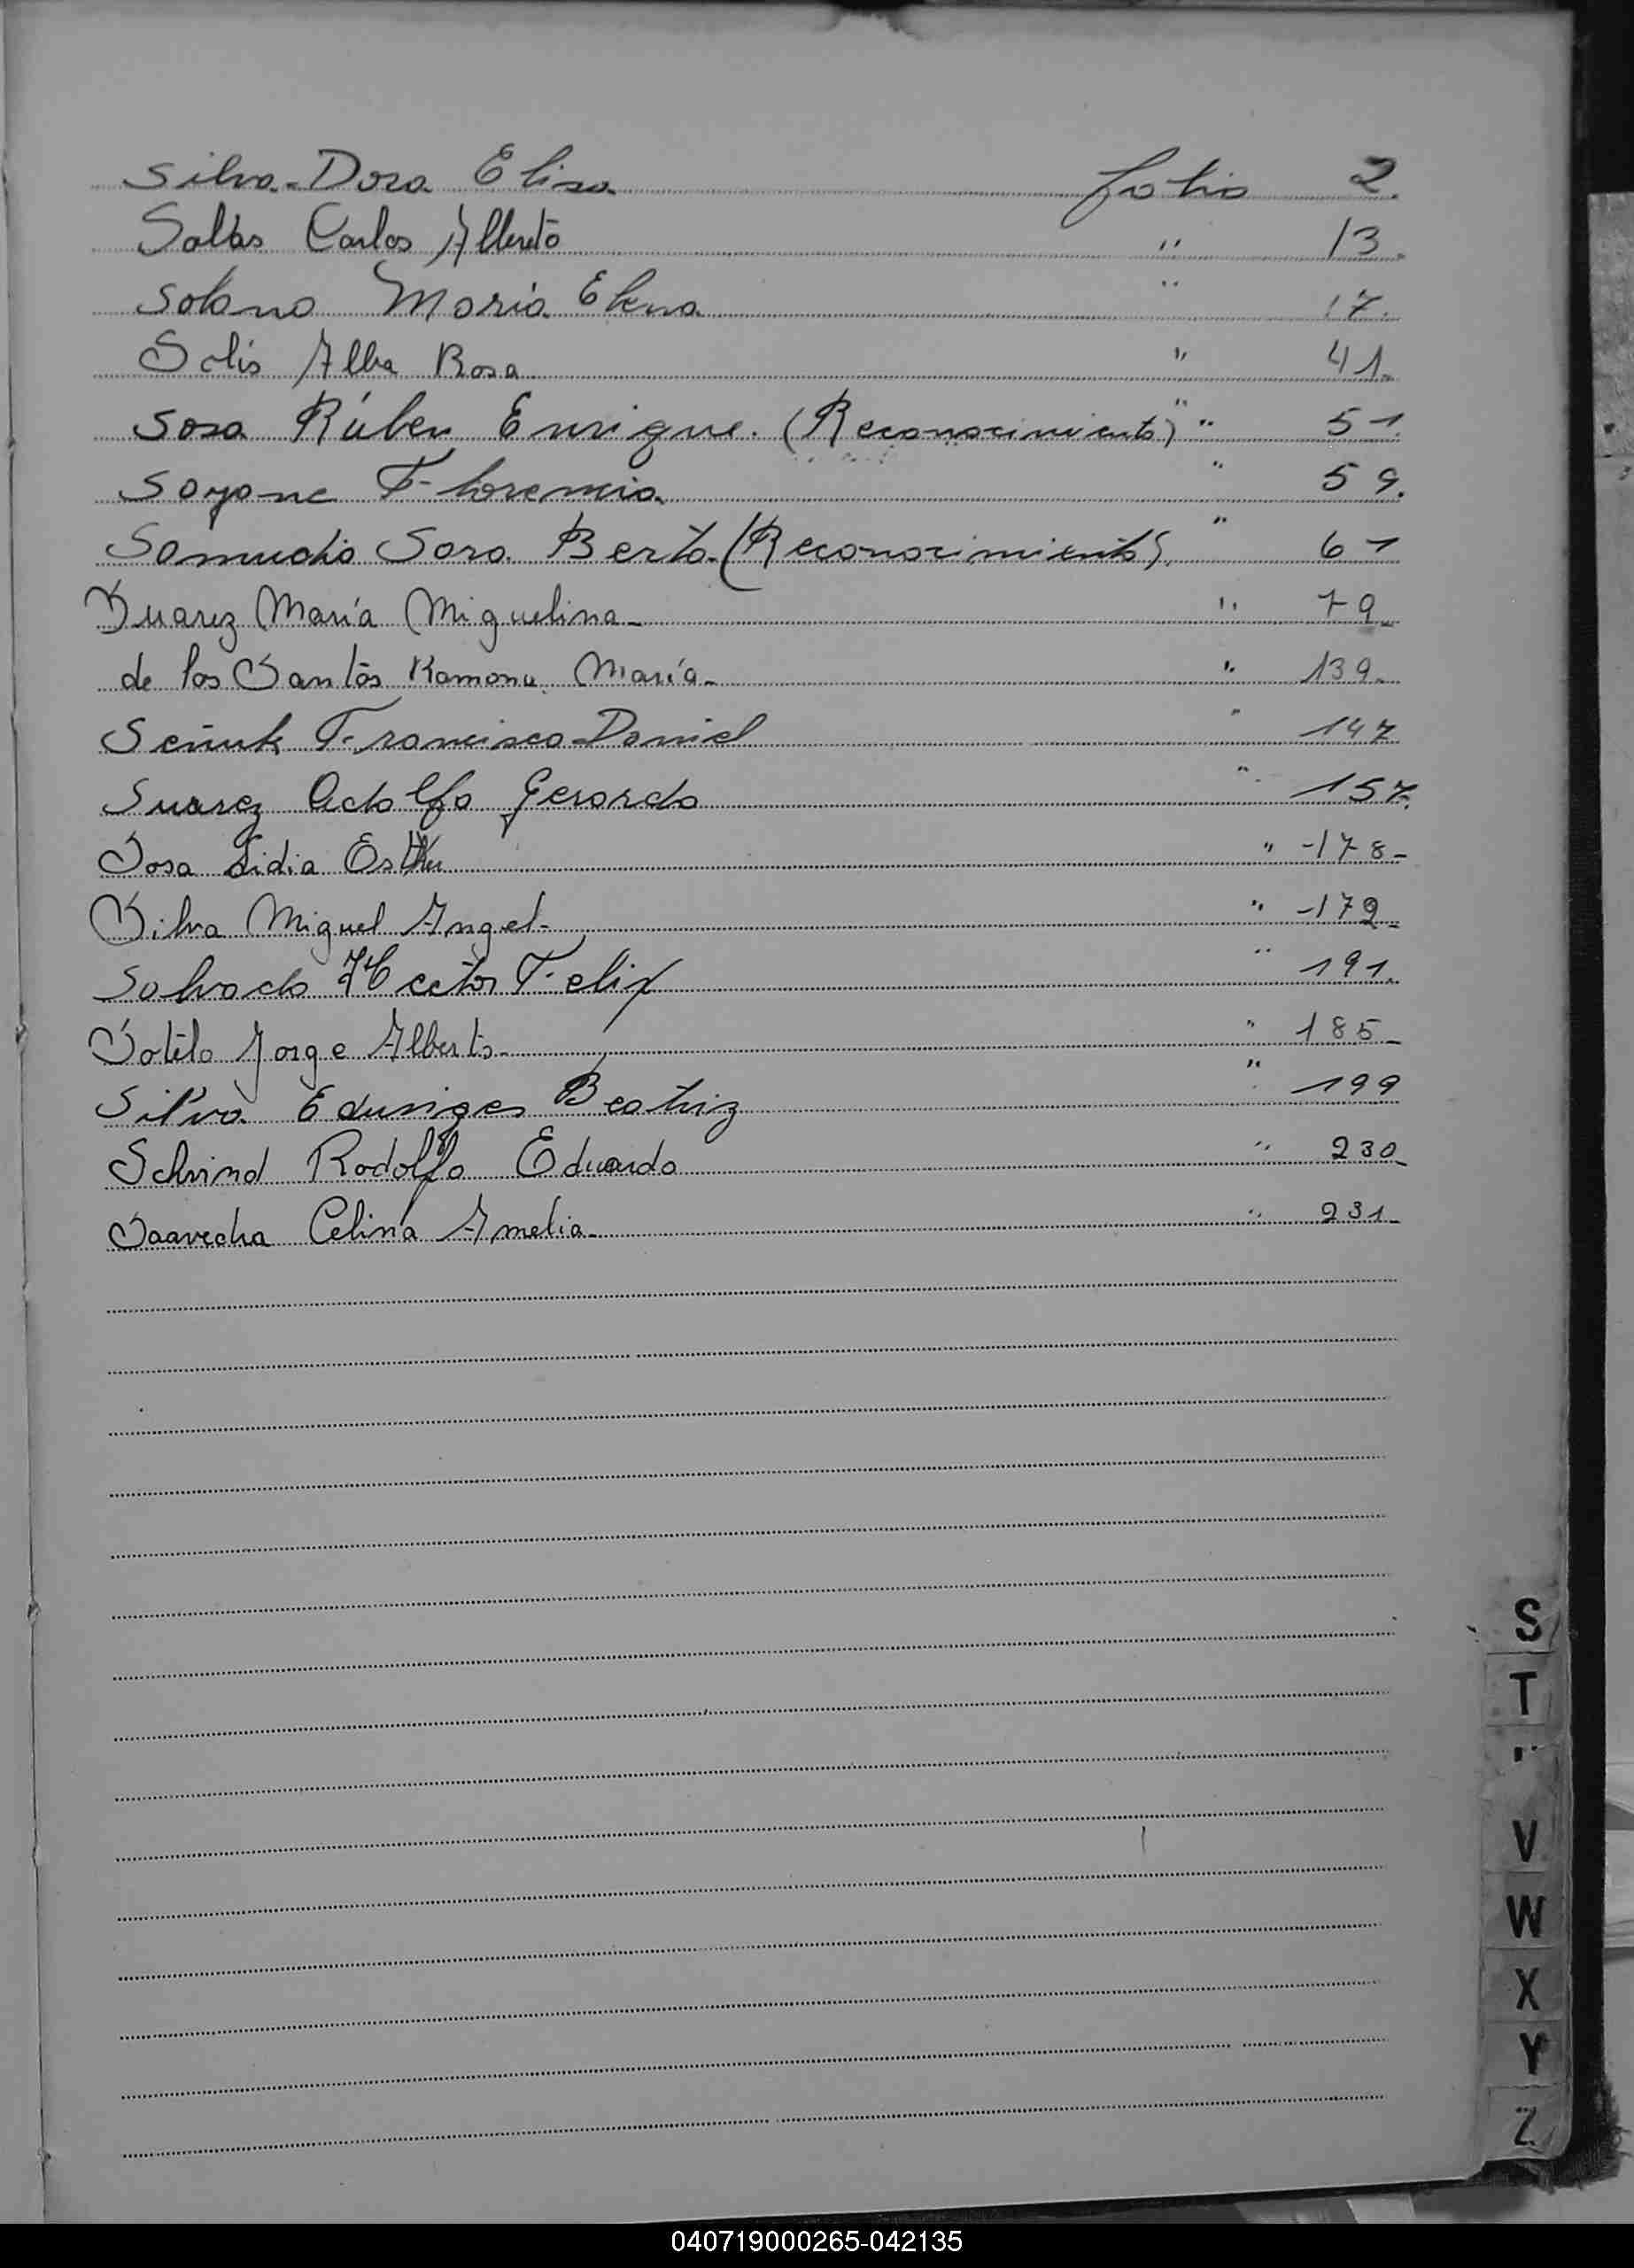 Silva Dora Elisa folio 2.
Salas Carlos Alberto " 13.
Solano Maria Elena " 17.
Solis Alba Rosa " 41.
Sosa Rúben Enrique. (Reconocimiento) " 51.
Florencia " 59.
Samudio Sara Berta (Reconocimiento) " 61
Suarez María Miguelina " 79
de los Santos Ramona María " 139
Francisco Daniel " 147
Suarez Adolfo Gerardo " 157.
Sosa Lidia Esther " -178-
Silva Miguel Angel " -179-
Salvado Hector Felix " 191.
Sotelo Jorge Alberto " 185
Silva Eduviges Beatriz " 199
Schvind Rodolfo Eduardo " 230
Saavedra Celina Amelia " 231
S
T
V
W
X
Y
Z
040719000265-042135